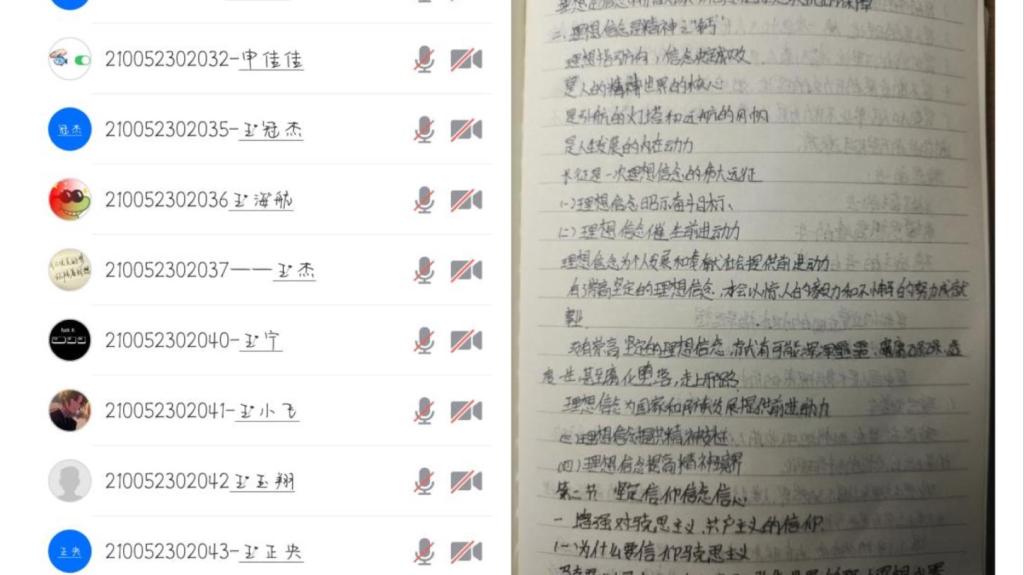 210052302032-申佳佳
冠杰
210052302035-王冠杰
210052302036王海航
210052302037——王杰
210052302040-王宁
210052302041-王小飞
210052302042王玉翔
正央
210052302043-王正央
二、理想信念是精神之“钙”
理想指引方向，信念决定成败
是人的精神世界的核心
是引航的灯塔和远航的风帆
是人生发展的内在动力
长征是一次理想信念的伟大远征
(一)理想信念昭示奋斗目标、
(二)理想信念催生前进动力
理想信念为个人发展和 社会提供前进动力
有崇高坚定的理想信念，才会以惊人的毅力和不懈的努力成就
事业
没有崇高坚定的理想信念，就有可能
甚至腐化堕落，走上邪路
理想信念为国家和民族发展提供前进动力
(三)理想信念提供精神支柱
(四)理想信念提高精神境界
第二节 坚定信仰信念信心
一 增强对马克思主义、共产主义的信仰
(一)为什么要信仰马克思主义